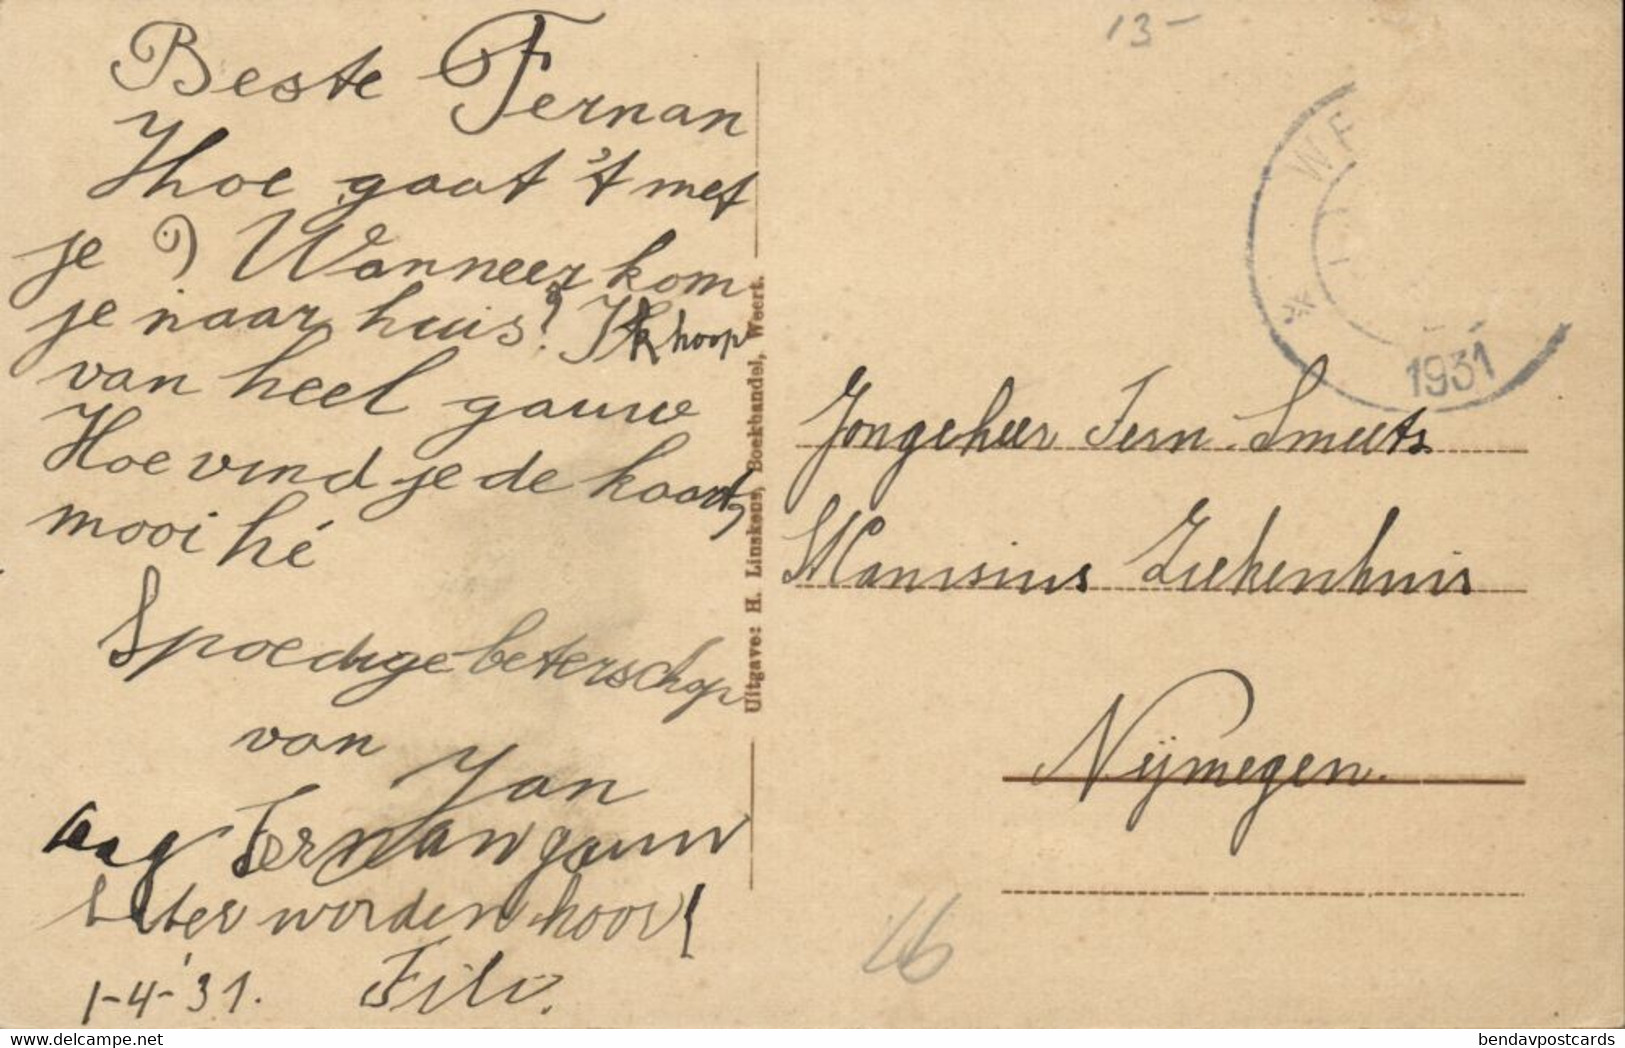 13-
Beste Fernan
Hoe gaat 't met
je? Wanneer kom
je naar huis? Ik hoop
van heel gauw
Hoe vind je de kaart,
mooi hé
Spoedige beterschap
van
Jan
Dag Fernan gauw
beter worden hoor!
1-4-'31. Filo.
Uitgave: H. Linskens, Boekhandel, Weert.
WE
1931
Jongeheer Fern. Smeets
St Canisius Ziekenhuis
Nijmegen.
46
www.delcampe.net
bendavpostcards